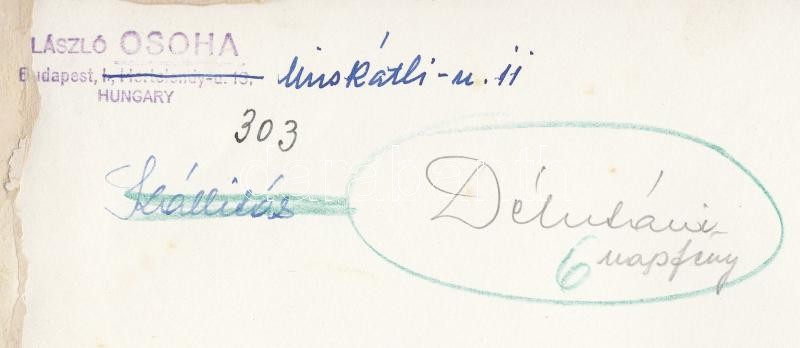 LÁSZLÓ OSOHA
Budapest, I, Mertelendy-u. 13.
HUNGARY
-u. 11
303
Kiállitás
Délutáni
napfény
6